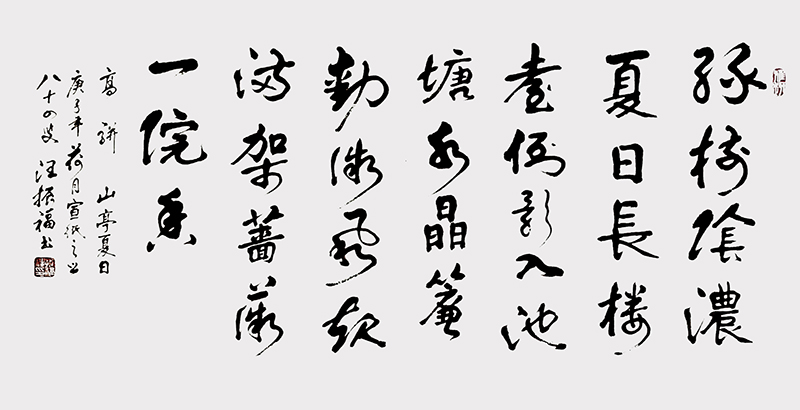 绿樹陰濃
夏日長楼
臺倒影入池
塘水晶簾
動微風起
满架蔷薇
一院香
高骈 山亭夏日
庚子年荷月宣纸之上
八十四叟汪振福书